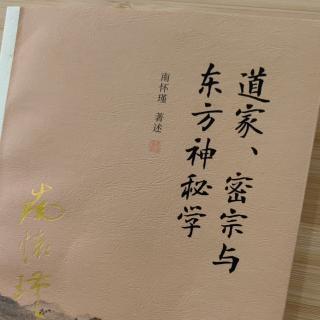 道家、密宗与
东方神秘学
南怀瑾 著述
南怀瑾